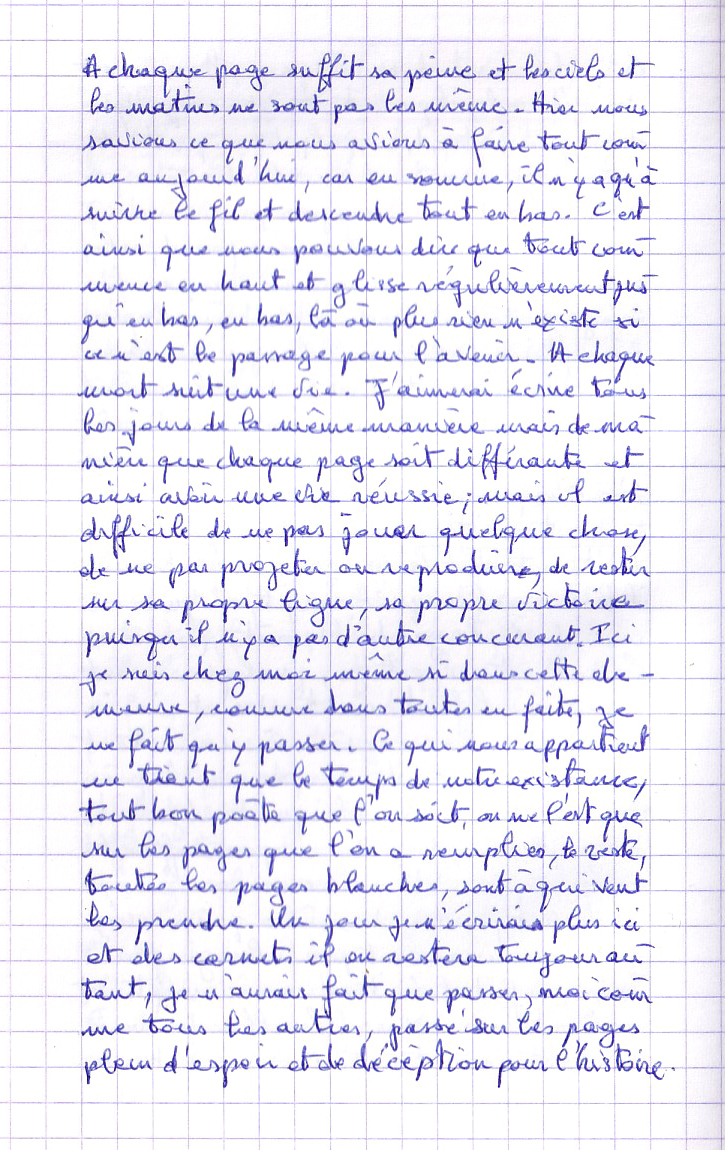 A chaque page suffit sa peine et les ciels et
les matins ne sont pas les même. Hier nous
savions ce que nous avions à faire tout com
me aujourd'hui, car en somme, il n'y a qu'à
suivre le fil et descendre tout en bas. C'est
ainsi que nous pouvons dire que tout com
mence en haut et glisse régulièrement jus
qu'en bas, en bas, là où plus rien n'existe si
ce n'est le passage pour l'avenir. A chaque
mort suit une vie. J'aimerai écrire tous
les jours de la même manière mais de ma
nière que chaque page soit différante et
ainsi avoir une vie réussie; mais il est
difficile de ne pas jouer quelque chose,
de ne pas projeter ou reproduire, de rester
sur sa propre ligne, sa propre victoire
puisqu'il n'y a pas d'autre concurant. Ici
je suis chez moi même si dans cette de-
meure, comme dans toutes en faite, je
ne fait qu'y passer. Ce qui nous appartient
ne tient que le temps de notre existance,
tout bon poète que l'on soit, on ne l'est que
sur les pages que l'on a remplies, le reste,
toutes les pages blanches, sont à qui veut
les prendre. Un jour je n'écrirais plus ici
et des carnets il en restera toujour au
tant, je n'aurais fait que passer, moi com
me tous les autres, passé sur les pages
plein d'espoir et de déception pour l'histoire.